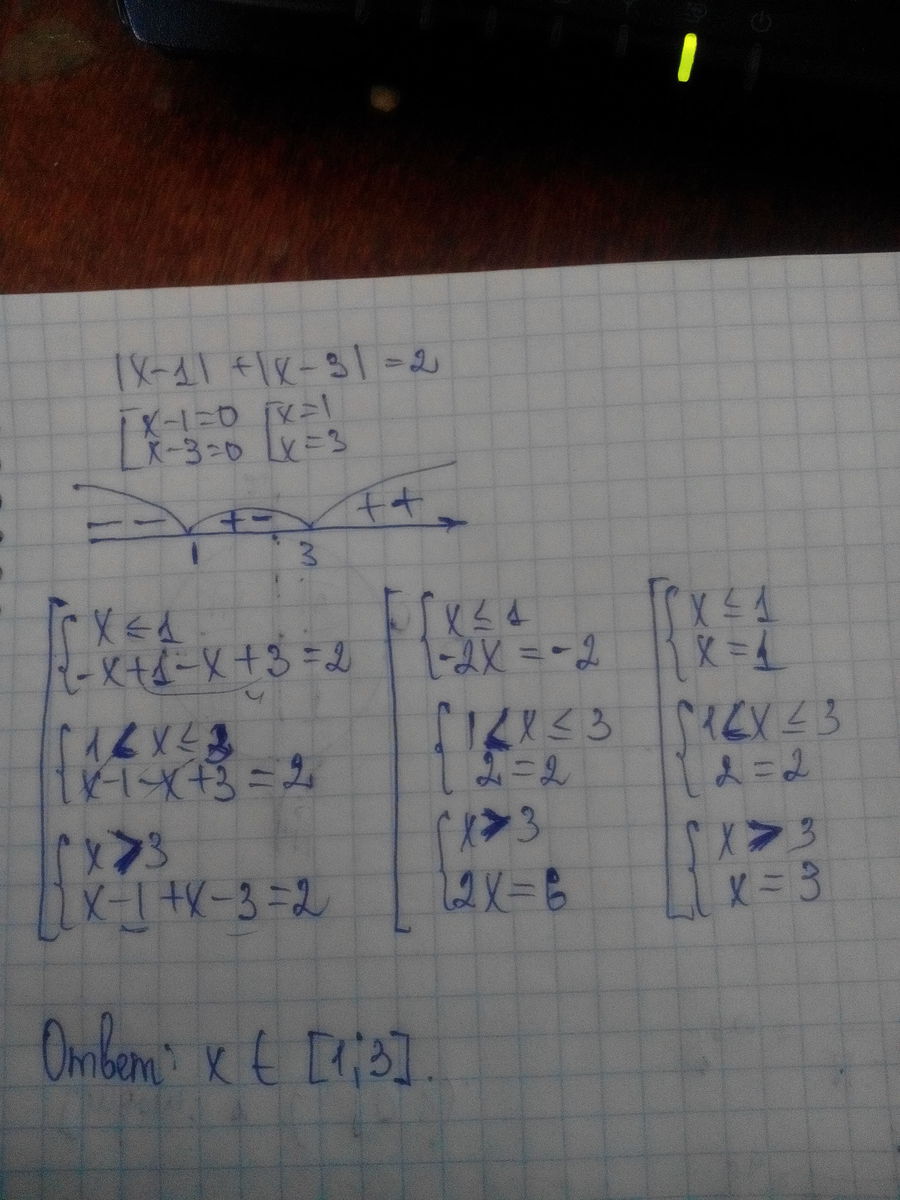 |x-1| + |x-3| = 2
x-1=0 x=1
x-3=0 x=3
- - + - + +
1 3
x ≤ 1
-x+1-x+3=2
1 < x ≤ 3
x-1-x+3=2
x > 3
x-1+x-3=2
x ≤ 1
-2x=-2
1 < x ≤ 3
2=2
x > 3
2x=6
x ≤ 1
x=1
1 < x ≤ 3
2=2
x > 3
x=3
Ответ: x ∈ [1;3].